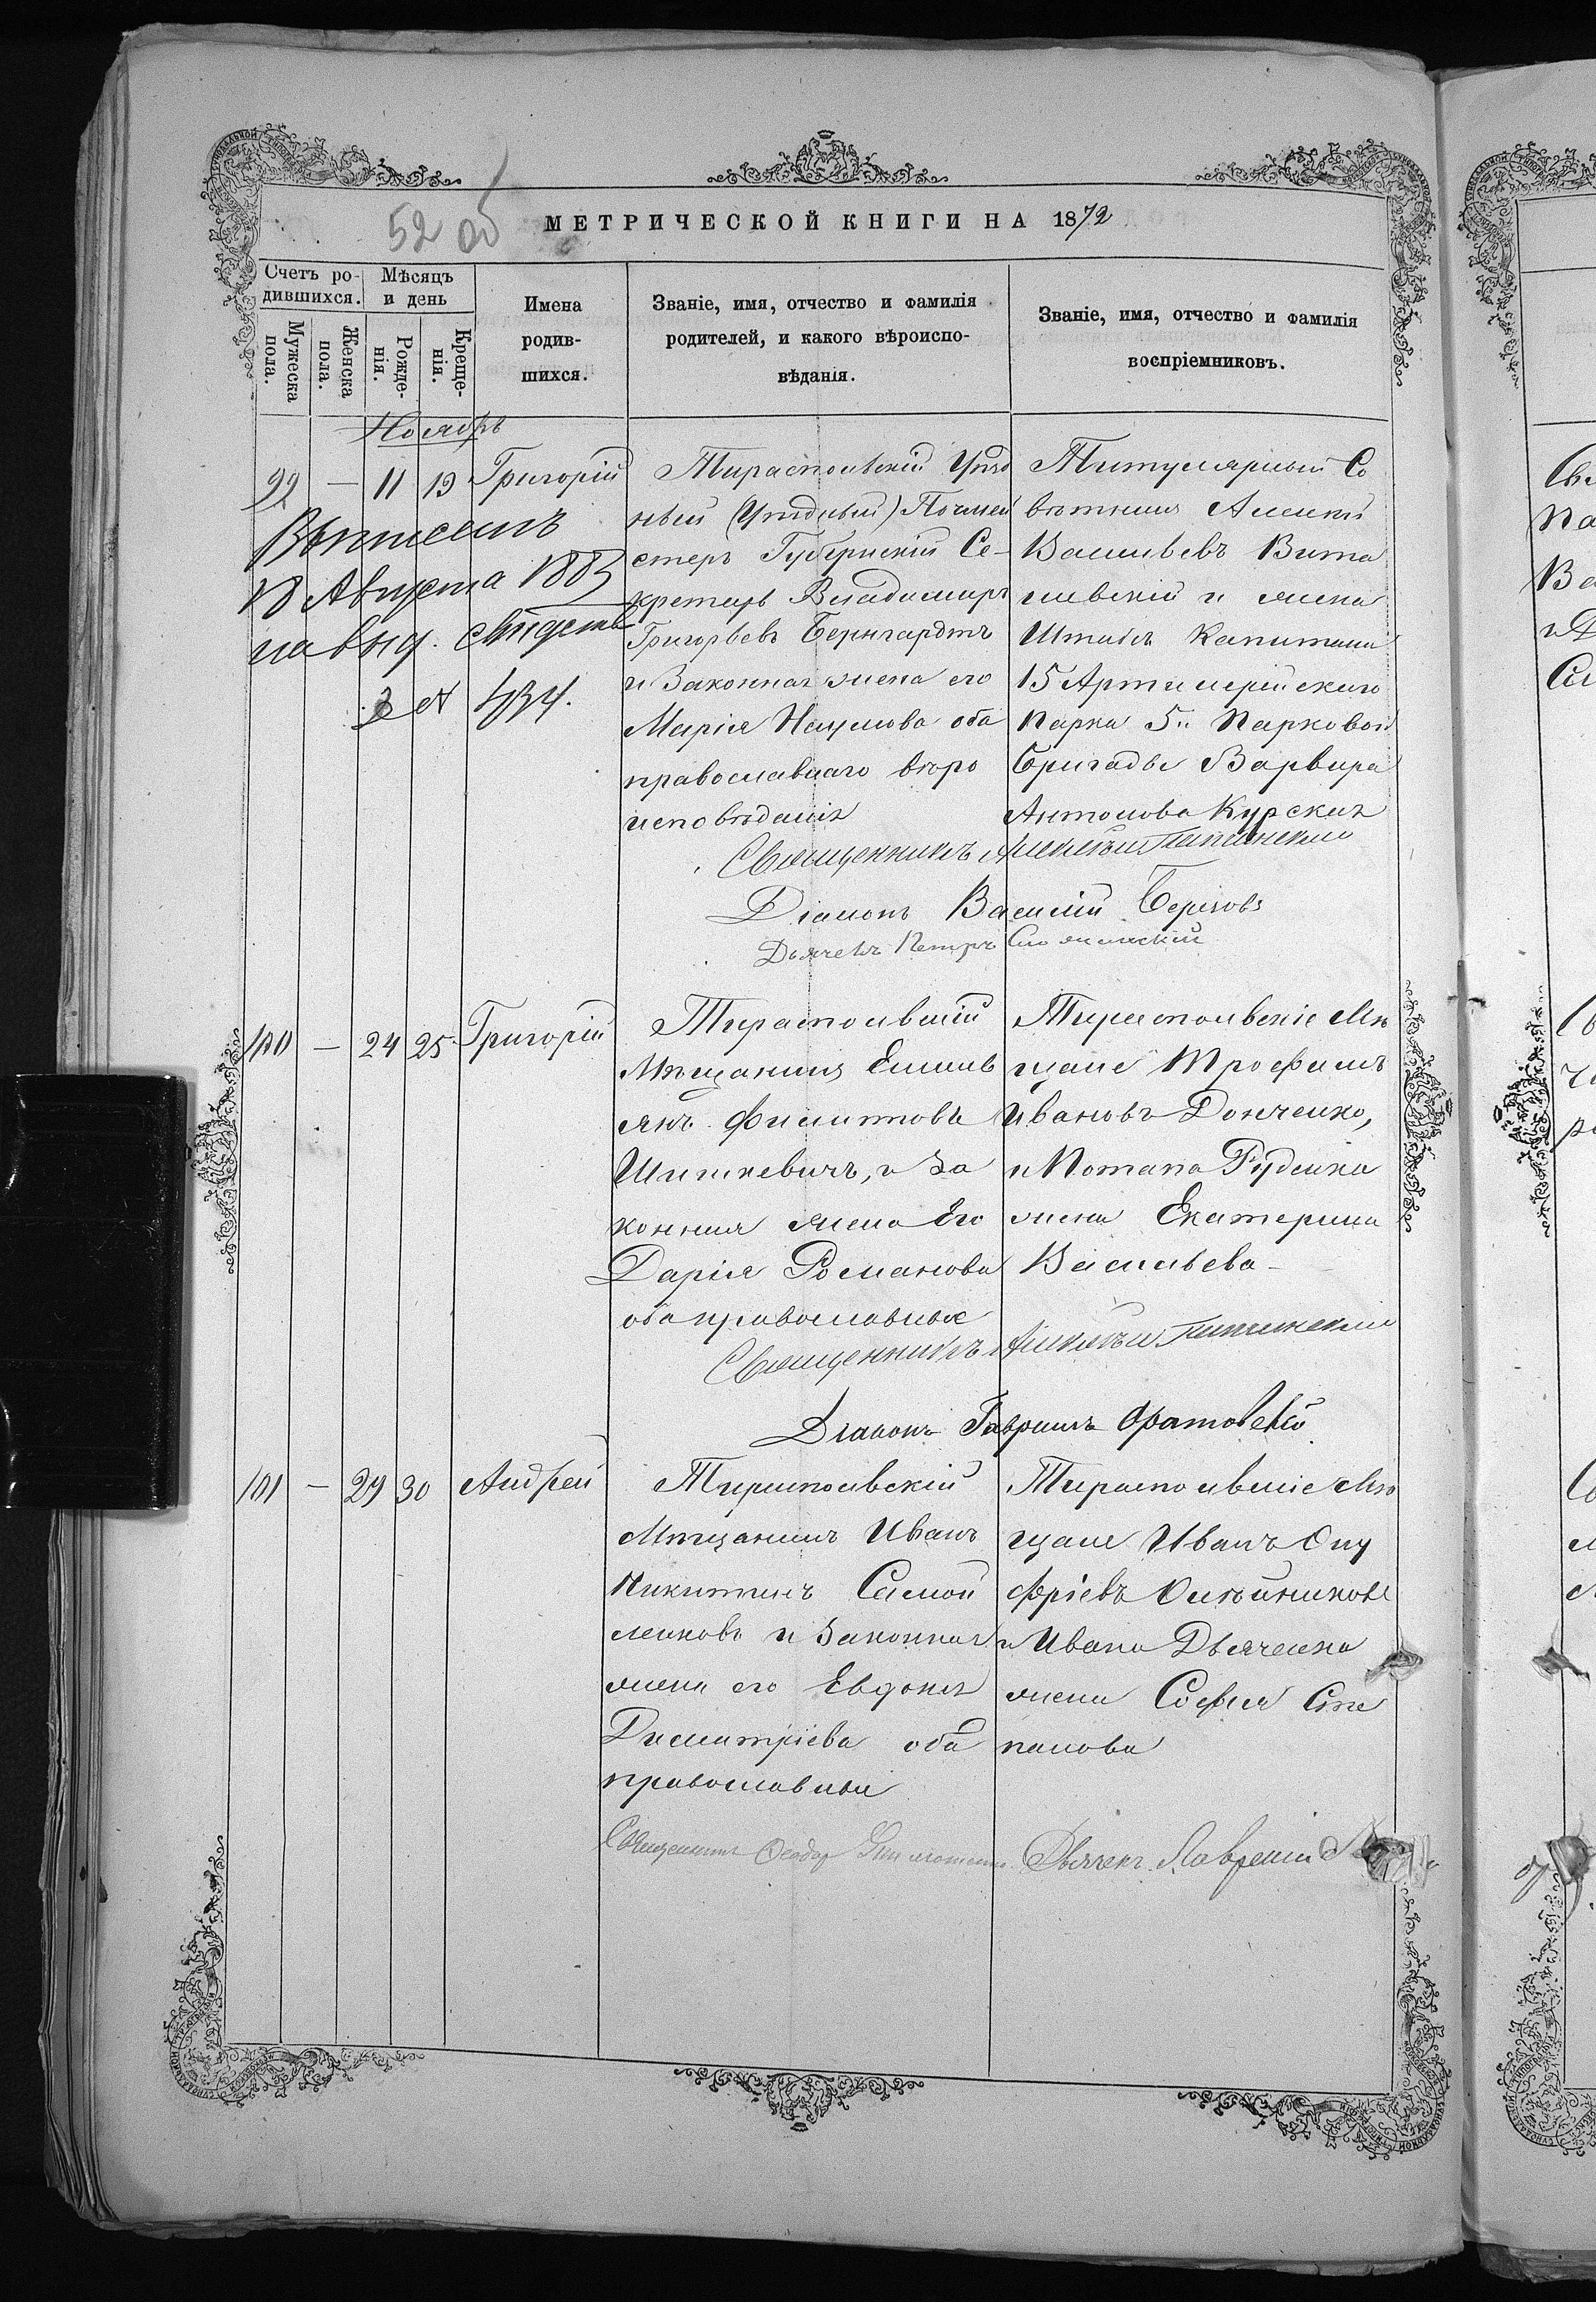 52 об
МЕТРИЧЕСКОЙ КНИГИ НА 1872
Счетъ ро-
дившихся.
Мѣсяцъ
и день
Мужеска
пола.
Женска
пола.
Рожде-
нія.
Креще-
нія.
Имена
родив-
шихся.
Званіе, имя, отчество и фамилія
родителей, и какого вѣроиспо-
вѣданія.
Званіе, имя, отчество и фамилія
воспріемниковъ.
Ноябрь
99 — 11 19 Григорій
Выписанъ
18 Августа 1883
на выд. свидѣтъ
434.
Тираспольскій Уѣзд
ный (Уѣздный) Почмей
стеръ Губернскій Се-
кретарь Владимиръ
Григорьевъ Бернгардтъ
и Законная жена его
Марія Наумова оба
православнаго вѣро
исповѣданія
Титулярный Со
вѣтникъ Алексѣй
Васильевъ Вита
левскій и жена
Штабсъ Капитана
15 Артилерійскаго
Парка 5й Парковой
Бригады Варвара
Антонова Курская
Священникъ Алексѣй
Діаконъ Василій
Дьячекъ Петръ
100 — 24 25 Григорій
Тираспольскій
Мѣщанинъ Емель
янъ Филитовъ
Шишкевичъ, и За
конная жена Его
Дарія Романова
оба православные
Тираспольскіе Мѣ
щане Трофимъ
Ивановъ Донченко,
и Потапа Руденка
жена Екатерина
Васильева
Священникъ Алексѣй
Діаконъ Гавріилъ
101 — 29 30 Андрей
Тираспольскій
Мѣщанинъ Иванъ
Никитинъ Самой
ленковъ и Законная
жена его Евдокія
Димитріева оба
православные
Тираспольскіе Мѣ
щане Иванъ Ону
фріевъ Олѣйниковъ
и Ивана Дьяченка
жена Софія Сте
панова
Священникъ Ѳеодоръ
Дьячекъ Лаврентій